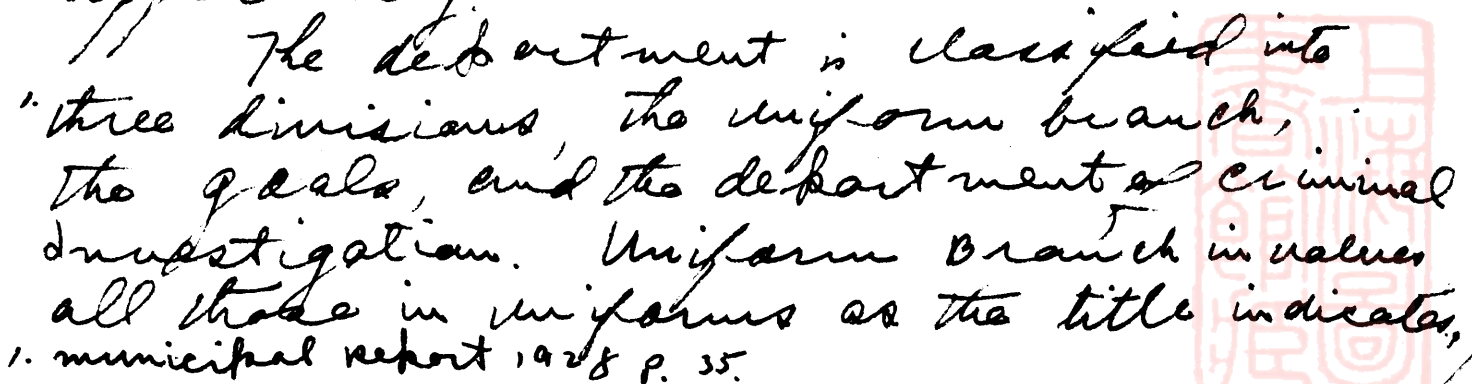 The department is classified into
1. three divisions, the uniform branch,
the goals, and the department of criminal
Investigation. Uniform Branch involves
all those in uniforms as the title indicates,
1. municipal Report 1928 p. 35.